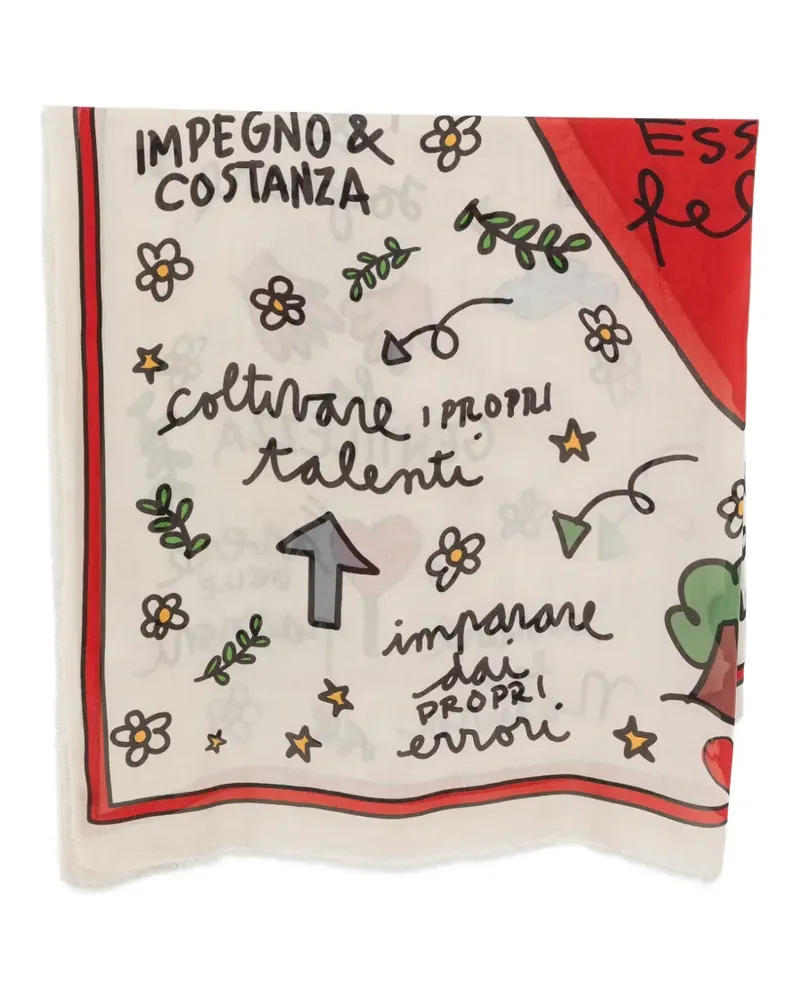 IMPEGNO &
COSTANZA
coltivare I PROPRI
talenti
imparare
dai
PROPRI
errori
ESS
fel